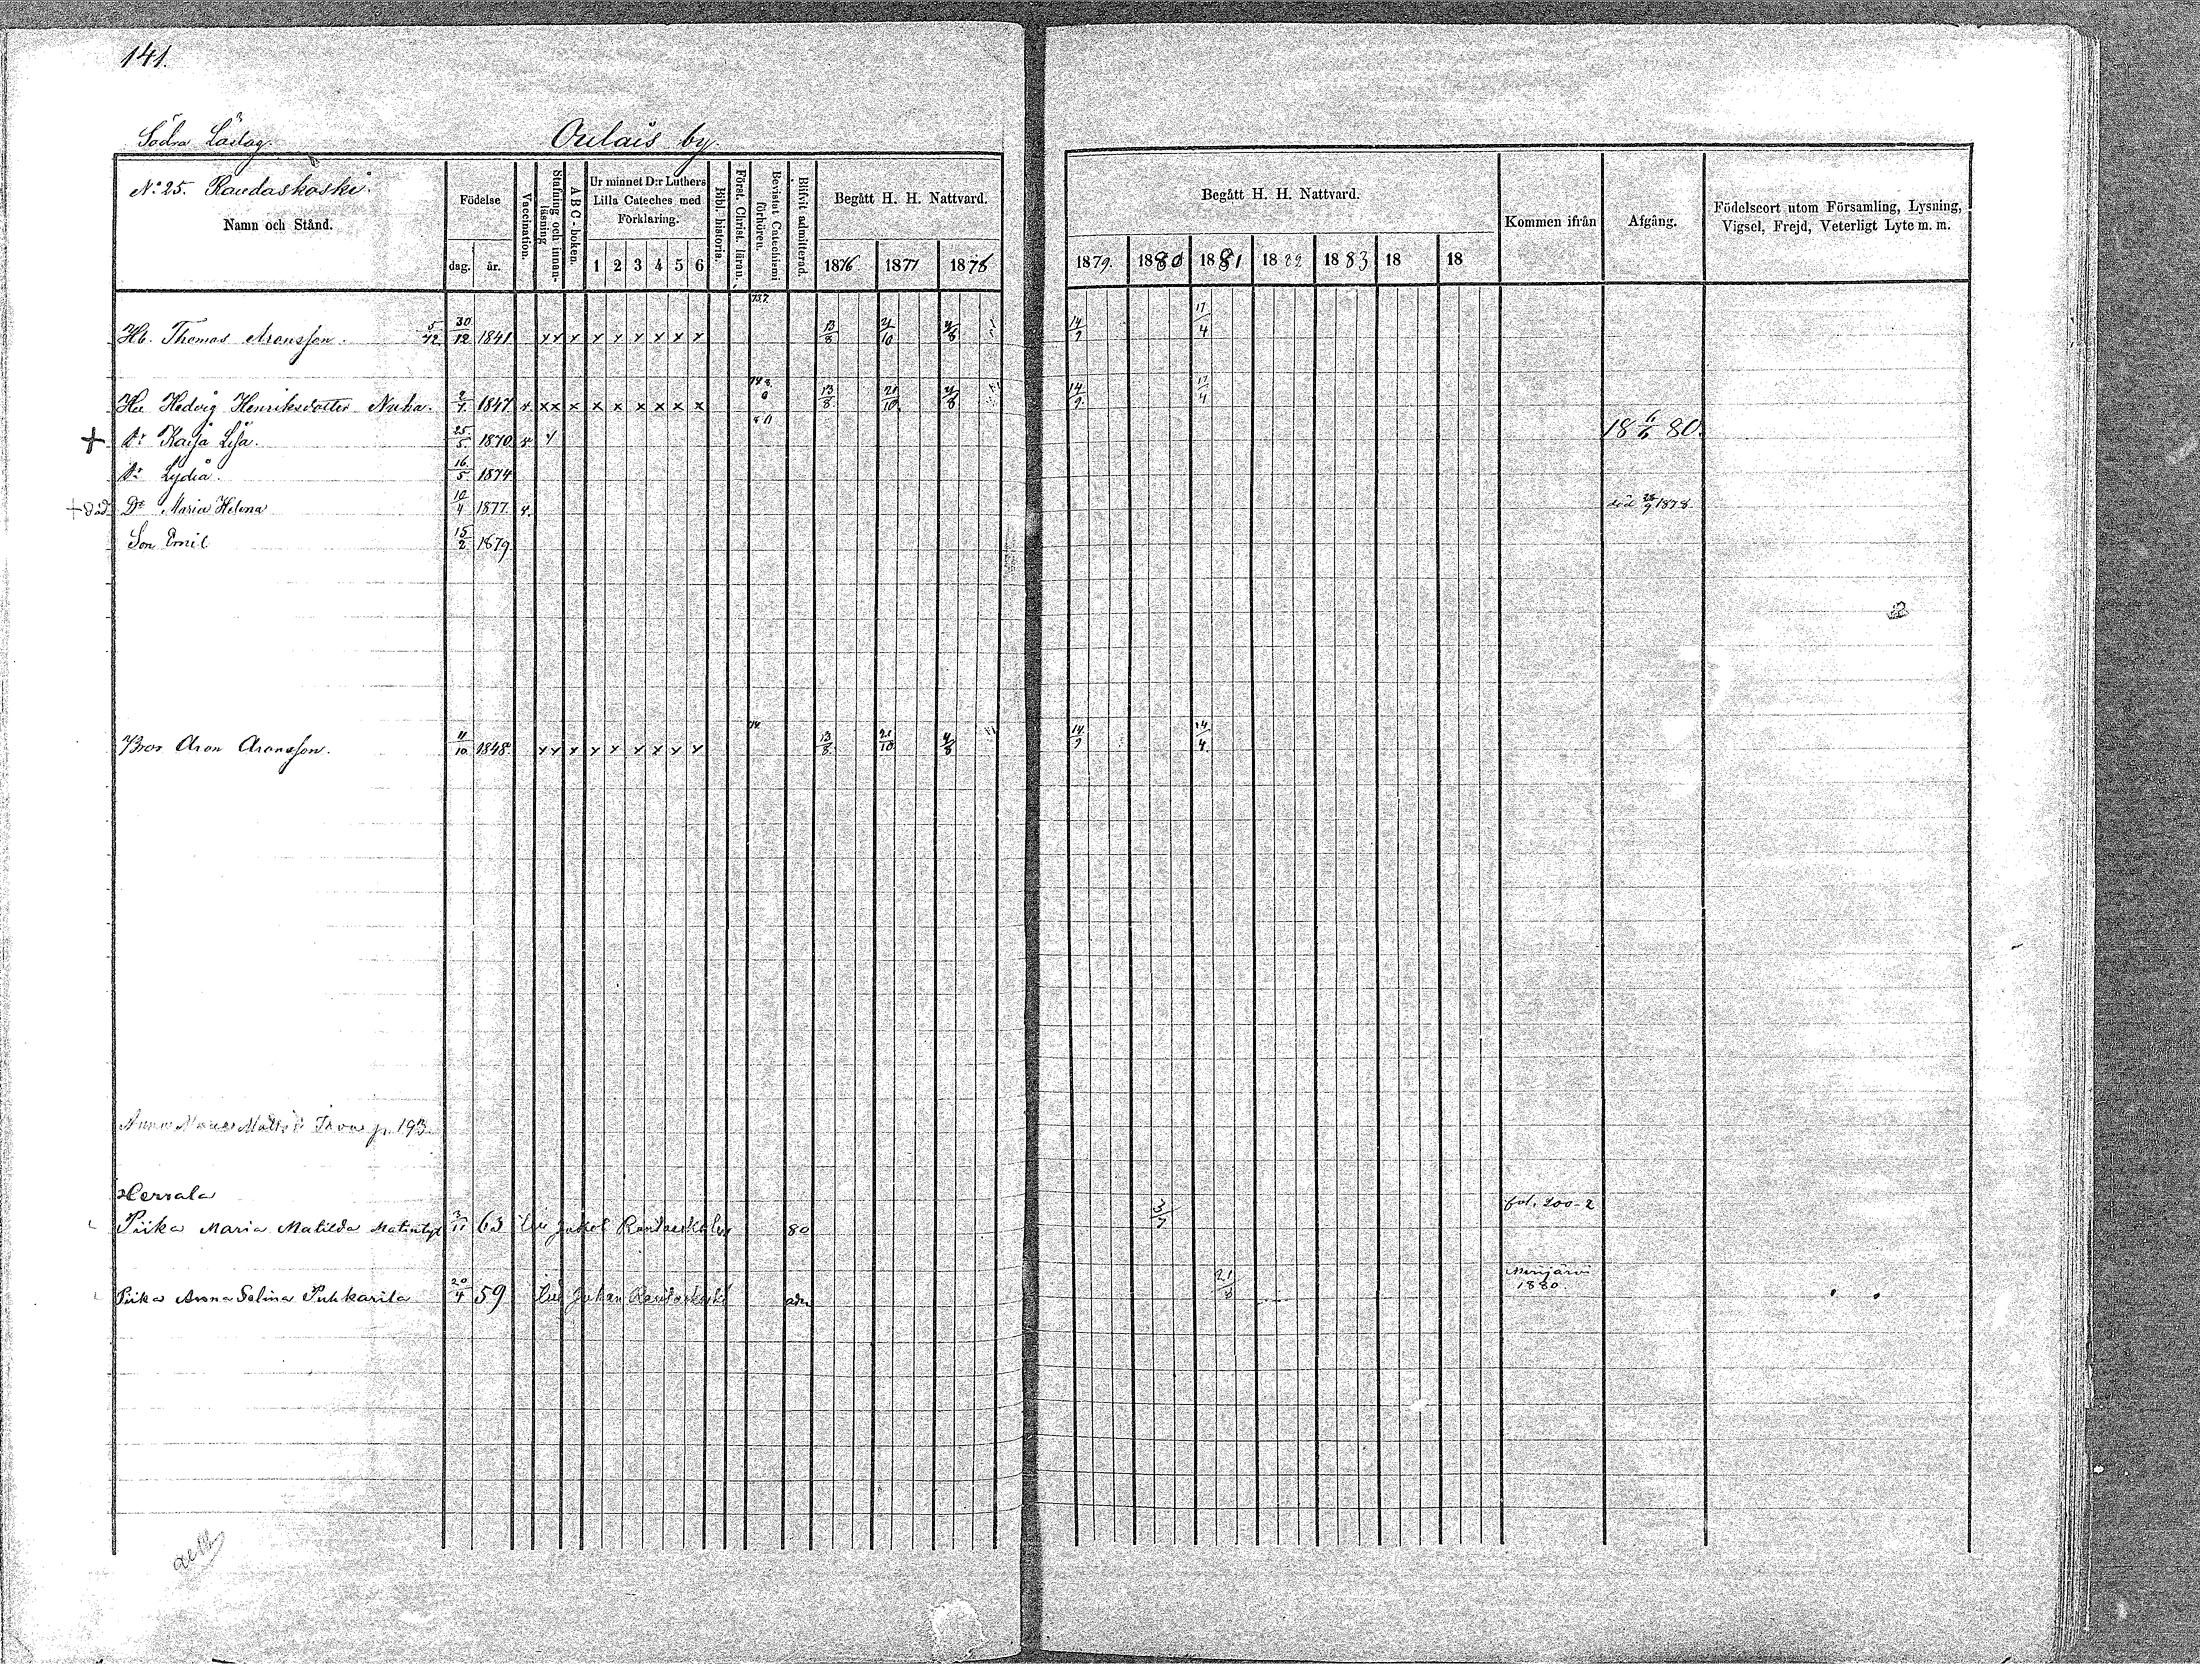 141.
Södra Lästag. Oulais by.
No 25. Raudaskoski.
Namn och Stånd.
Födelse
dag. år.
Vaccination.
Stafning och innan-läsning
ABC-boken.
Ur minnet D:r Luthers Lilla Cateches med Förklaring.
1 2 3 4 5 6
Bibl. historia.
Först. Christ. läran.
Bevistat Catechismi förhören.
Blifvit admitterad.
Begått H. H. Nattvard.
1876. 1877 1878
Begått H. H. Nattvard.
1879. 1880 1881 1882 1883 18 18
Kommen ifrån
Afgång.
Födelseort utom Församling, Lysning, Vigsel, Frejd, Veterligt Lyte m. m.
Hb. Thomas Aronsson. 30/12 1841 x x x x x x x x x 13/8 21/10 4/8 14/9 17/4
Hu Hedvig Henriksdotter Nuha. 2/7 1847 x x x x x x x x x x 13/8 21/10 4/8 14/9 17/4
+ Dr Kaisa Lisa. 25/5 1870 x x 18 6/6 80.
Dr Lydia. 16/5 1874
+ död Dr Maria Helena 10/4 1877 x. död 28/9 1878.
Son Emil 15/2 1879
Bror Aron Aronsson. 11/10 1848 x x x x x x x x x 13/8 21/10 4/8 14/9 14/4
Anna Maria Matts p. 193
Herrala
Piika Maria Matilda Matintyt 3/11 63 Jakob Raudaskoski 80 3/7 fol. 200-2
Piika Anna Selina Puhkarila 20/4 59 Juhan Raudaskoski adm 21/8 Merijärvi 1880.